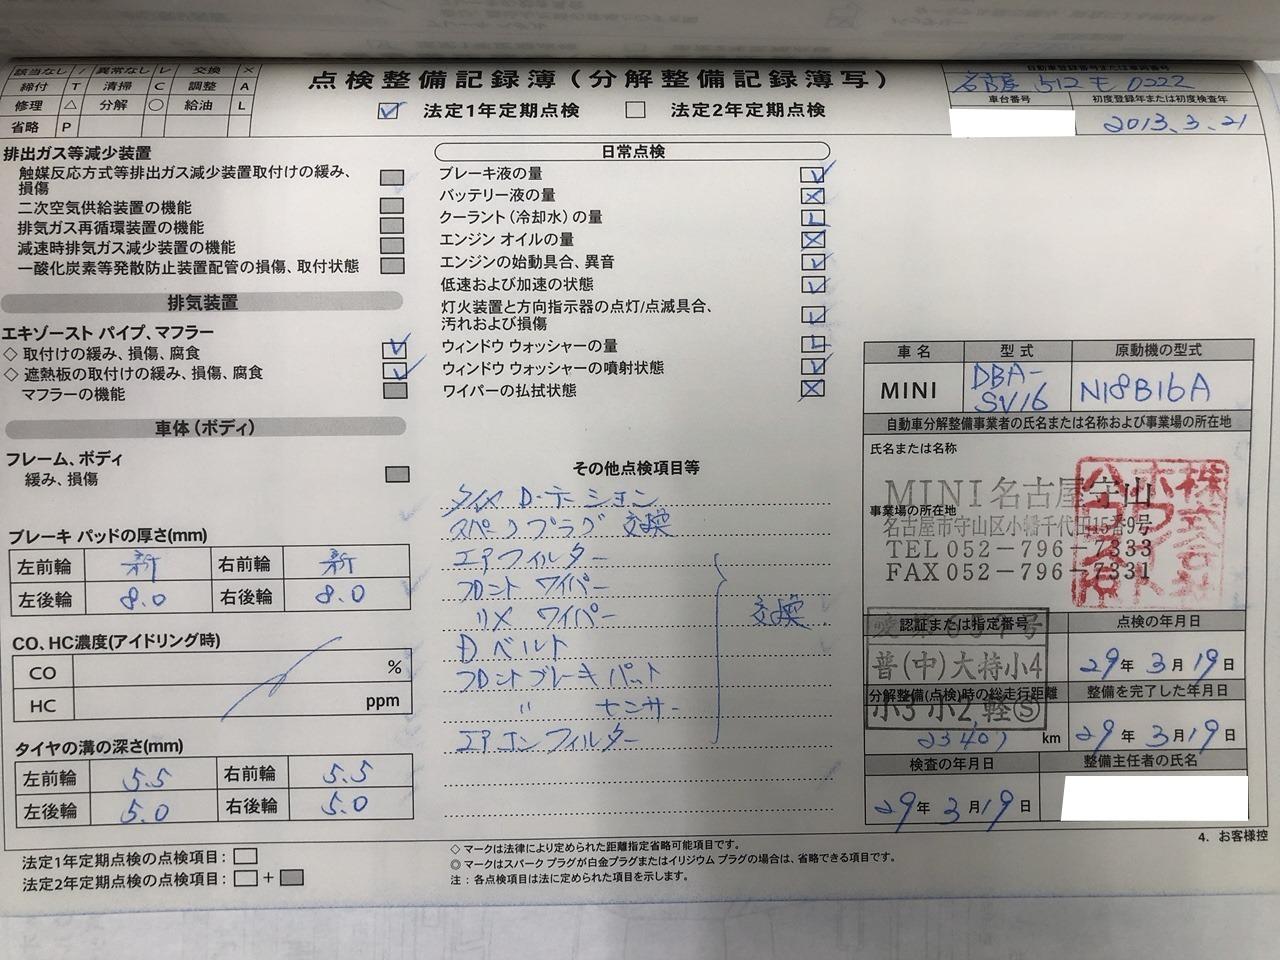 該当なし / 異常なし レ 交換 ×
締付 T 清掃 C 調整 A
修理 △ 分解 ○ 給油 L
省略 P
点検整備記録簿(分解整備記録簿写)
法定1年定期点検 法定2年定期点検
自動車登録番号または車両番号
名古屋 512 モ 0222
車台番号 初度登録年または初度検査年
2013.3.21
排出ガス等減少装置
触媒反応方式等排出ガス減少装置取付けの緩み、
損傷
二次空気供給装置の機能
排気ガス再循環装置の機能
減速時排気ガス減少装置の機能
一酸化炭素等発散防止装置配管の損傷、取付状態
排気装置
エキゾースト パイプ、マフラー
◇ 取付けの緩み、損傷、腐食
◇ 遮熱板の取付けの緩み、損傷、腐食
マフラーの機能
車体(ボディ)
フレーム、ボディ
緩み、損傷
ブレーキ パッドの厚さ(mm)
左前輪 新 右前輪 新
左後輪 8.0 右後輪 8.0
CO、HC濃度(アイドリング時)
CO %
HC ppm
タイヤの溝の深さ(mm)
左前輪 5.5 右前輪 5.5
左後輪 5.0 右後輪 5.0
法定1年定期点検の点検項目:
法定2年定期点検の点検項目: +
日常点検
ブレーキ液の量
バッテリー液の量
クーラント(冷却水)の量
エンジン オイルの量
エンジンの始動具合、異音
低速および加速の状態
灯火装置と方向指示器の点灯/点滅具合、
汚れおよび損傷
ウィンドウ ウォッシャーの量
ウィンドウ ウォッシャーの噴射状態
ワイパーの払拭状態
その他点検項目等
タイヤ ローテーション
スパークプラグ 交換
エアフィルター
フロント ワイパー
リヤ ワイパー 交換
ベルト
フロントブレーキ パット
〃 センサー
エアコンフィルター
◇ マークは法律により定められた距離指定省略可能項目です。
◎ マークはスパーク プラグが白金プラグまたはイリジウム プラグの場合は、省略できる項目です。
注 : 各点検項目は法に定められた項目を示します。
車名 型式 原動機の型式
MINI DBA-SV16 N18B16A
自動車分解整備事業者の氏名または名称および事業場の所在地
氏名または名称
MINI名古屋守山
事業場の所在地
名古屋市守山区小幡千代田15番9号
TEL 052-796-7333
FAX 052-796-7331
株式会社
認証または指定番号 点検の年月日
普(中)大特小4 29年 3月 19日
分解整備(点検)時の総走行距離 整備を完了した年月日
小3 小2 軽Ⓢ
23407 km 29年 3月 19日
検査の年月日 整備主任者の氏名
29年 3月 19日
4. お客様控